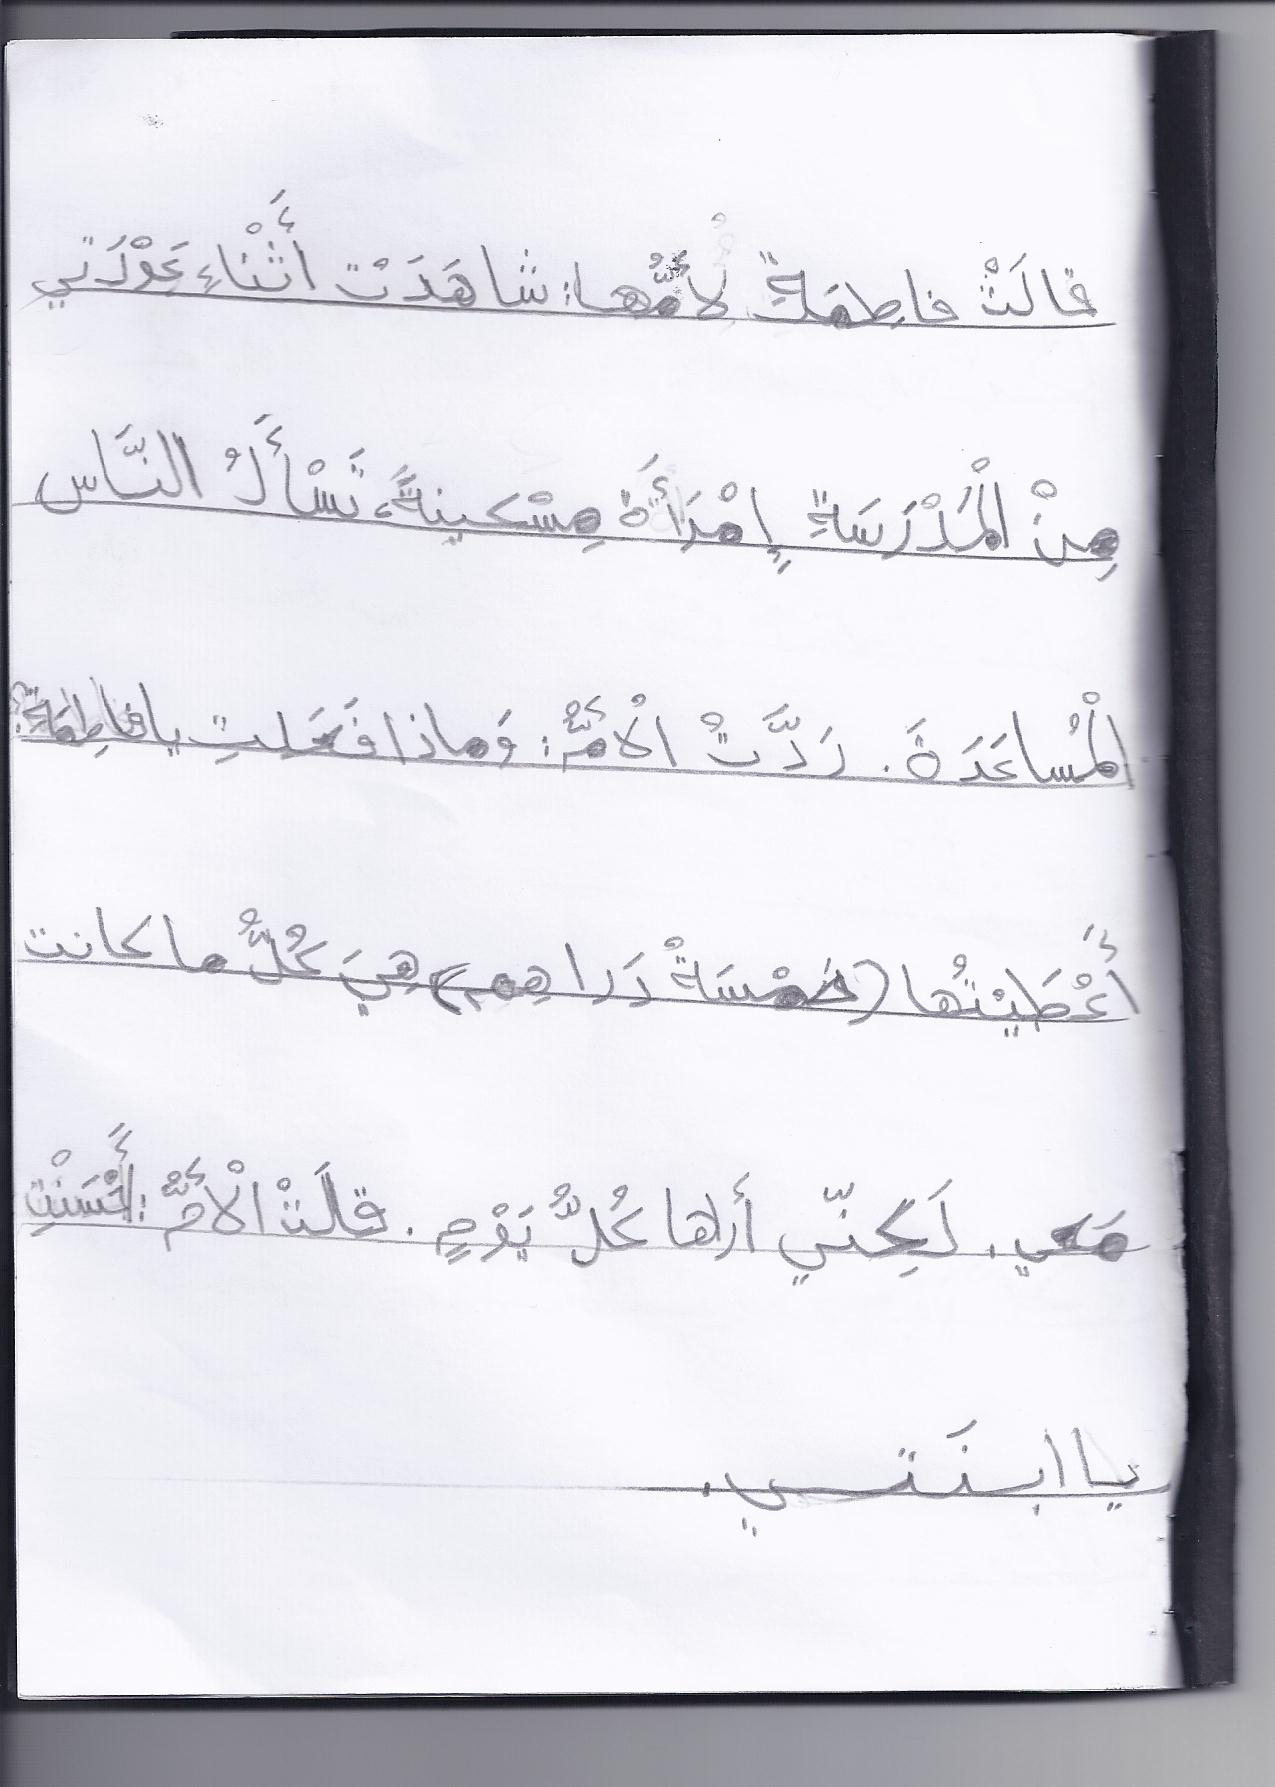 قالَتْ فاطِمَةٌ لِأُمِّها: شاهَدَتْ أَثْناءِ عَوْدَتي
مِنْ الْمَدْرَسَةِ إِمْرَأَةً مِسْكينةً، تَسْأَلُ النَّاس
الْمُساعَدَةَ. رَدَّتْ الْأُمُّ: وَماذا فَعَلتِ يا فاطِمَة؟
أَعْطَيْتُها (خَمْسَةْ دَراهِم) هِيَ كُلُّ ما كانت
مَعي. لَكِنّي أَراها كُلُّ يَوْمٍ. قالَتْ الْأُمُّ: أَحْسَنْتِ
يا ابنَتي.